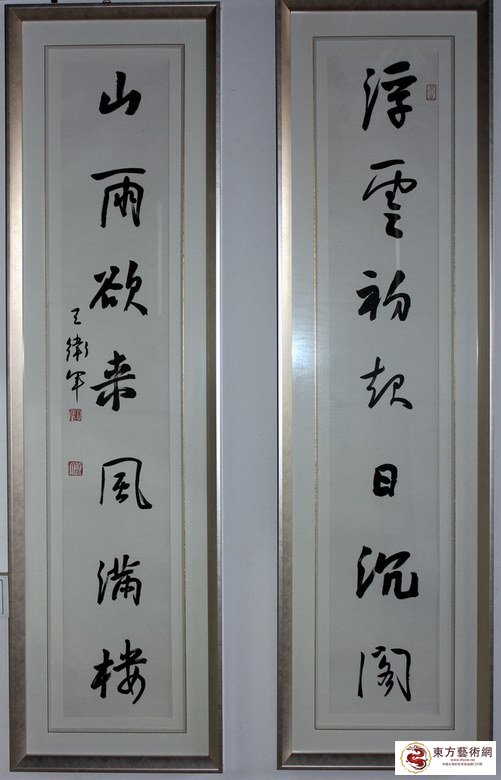 浮雲初起日沉閣
山雨欲来風滿樓
王衛军
東方藝術網